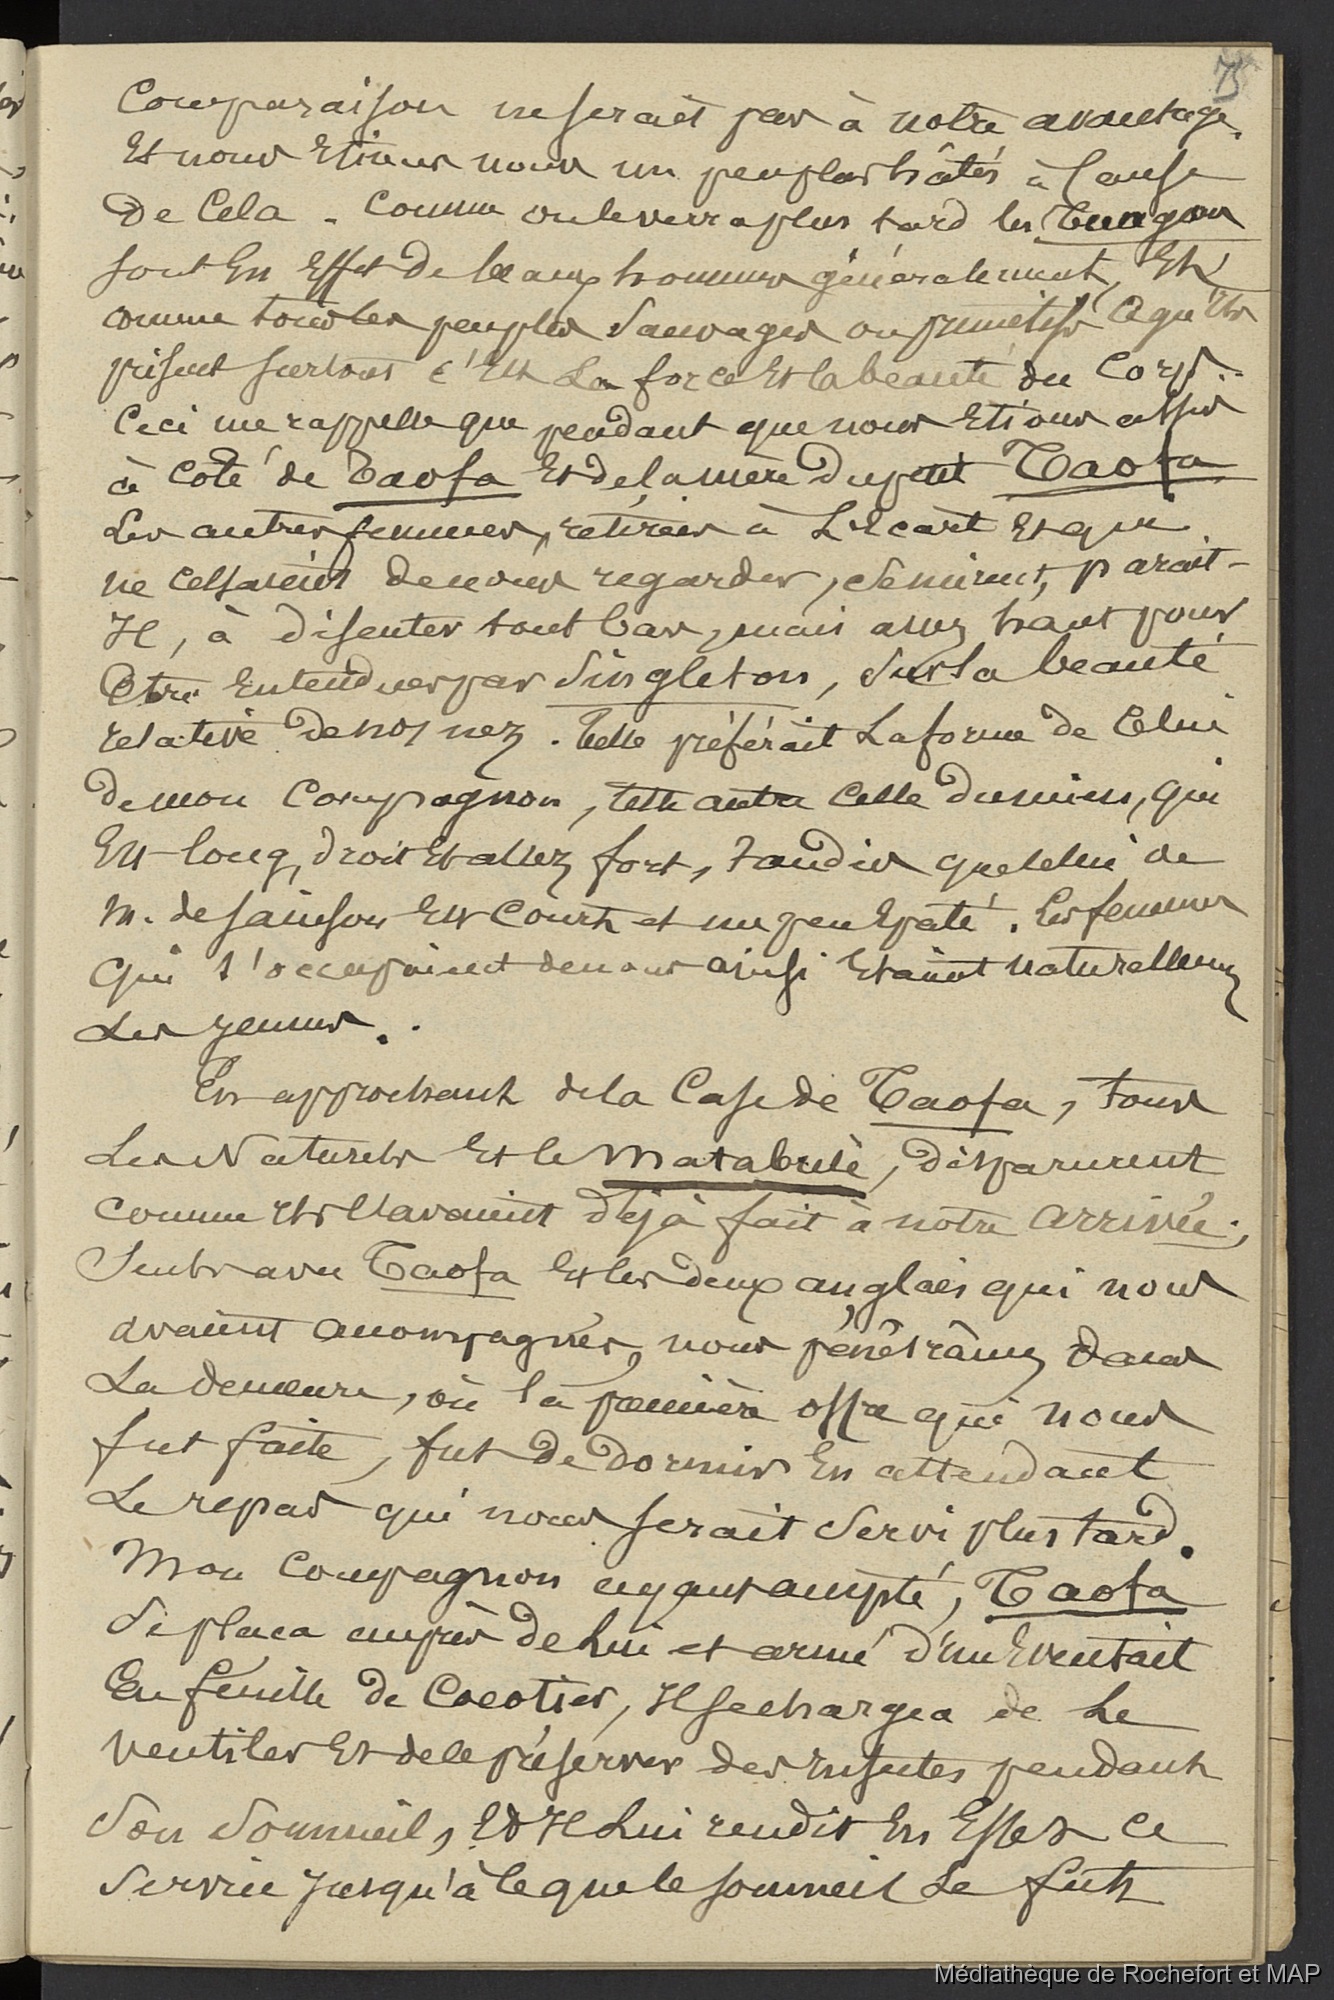 75
Comparaison ne serait pas à notre avantage.
Et nous Etions nous un peu plus hâtés à Cause
De Cela. Comme on le verra plus tard les Tongas
sont En Effet De beaux hommes généralement, Et
comme tous les peuples Sauvages ou primitifs Ce qu'Ils
prisent surtout c'Est La force Et la beauté du Corps..
Ceci me rappelle que pendant que nous Etions assis
à Coté de Taofa Et de la mère Du petit Taofa
Les autres femmes, retirées à L'Ecart Et qui
ne Cessaient de nous regarder, se mirent, parait-
Il, à Discuter tout bas, mais assez haut pour
Etre Entendues par Singleton, Sur la beauté
relative De nos nez. Telle préférait La forme de Celui
De mon Compagnon, telle autre Celle Du mien, qui
Est long, droit Et assez fort, tandis que Celui de
M. de Sainson Est Court et un peu Epaté. Les femmes
qui s'occupaient de nous ainsi Etaient naturellement
Les jeunes..
En approchant de la Case de Taofa, tous
Les Naturels Et le Matabulè, Disparurent
Comme Ils l'avaient Déjà fait à notre Arrivée;
Seuls avec Taofa Et les deux anglais qui nous
avaient accompagnés, nous pénétrâmes Dans
La Demeure, où la première offre qui nous
fut faite, fut De Dormir En attendant
Le repas qui nous serait Servi plus tard.
Mon Compagnon ayant accepté, Taofa
Se plaça auprès De Lui et armé D'un Eventail
En feuille de Cocotier, Il se chargea de Le
Ventiler Et de le préserver des Insectes pendant
Son Sommeil, Et Il Lui rendit En Effet Ce
Service Jusqu'à Ce que le Sommeil Le fuît
Médiathèque de Rochefort et MAP